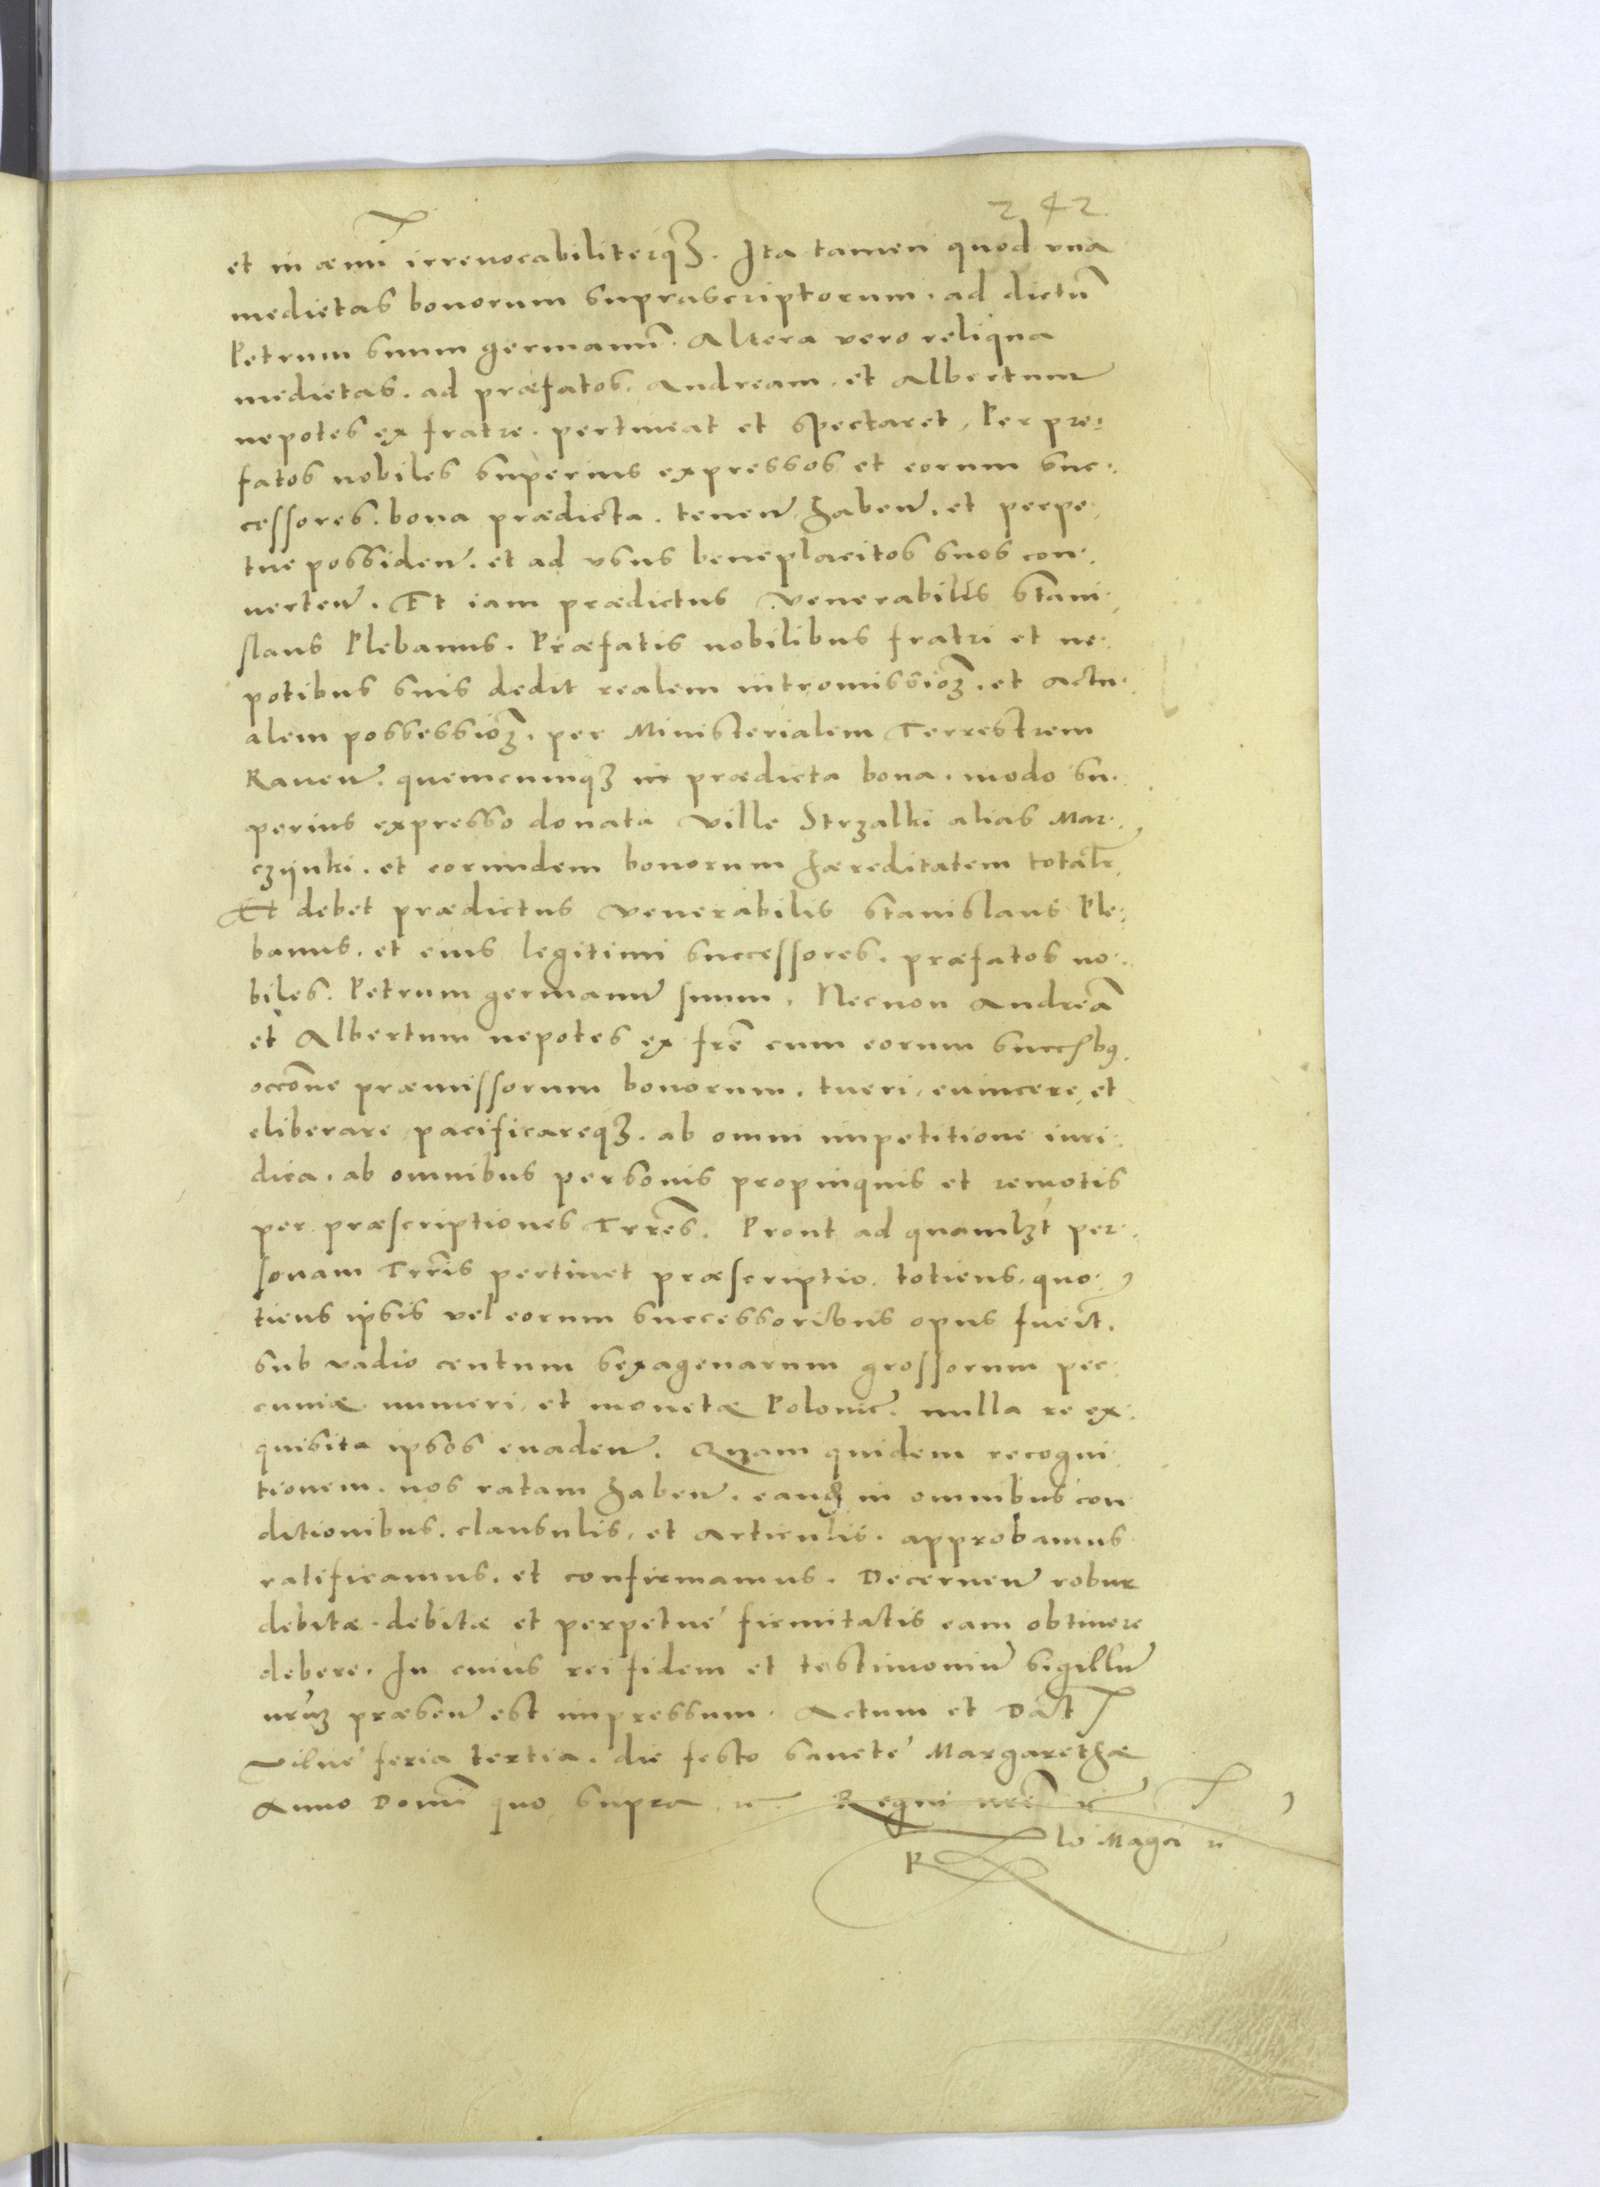 242
et in aevũ irrevocabiliterqȝ. Ita tamen quod vna
medietas bonorum suprascriptorum. ad dictũ
Petrum suum germanũ. Altera vero reliqua
medietas. ad præfatos. Andream. et Albertum
nepotes ex fratre. pertineat et spectaret, Per pre¬
fatos nobiles superius expressos et eorum suc¬
cessores. bona prædicta. tenen̄. haben̄. et perpe¬
tue possiden̄. et ad vsus beneplacitos suos con¬
verten̄. Et iam prædictus Venerabilis Stani¬
slaus Plebanus. Præfatis nobilibus fratri et ne¬
potibus suis dedit realem intromissioȝ. et actu¬
alem possessioȝ. per Ministerialem Terrestrem
Raven̄. quemcumqȝ in prædicta bona. modo su¬
perius expresso donata Ville Strzalki alias Mar¬
czijnki. et eorundem bonorum hæreditatem totalr̃
Et debet prædictus Venerabilis Stanislaus Ple¬
banus. et eius legitimi successores. præfatos no¬
biles. Petrum germanũ suum. Necnon Andreã
et Albertum nepotes ex frẽ cum eorum succ̃sbꝫ.
occõne præmissorum bonorum. tueri, evincere, et
eliberare pacificareqȝ. ab omni impetitione iuri¬
dica. ab omnibus personis propinquis et remotis
per præscriptiones Trrẽs. Prout ad quamlȝt per¬
sonam Trr̃is pertinet præscriptio. totiens. quo¬
tiens ipsis vel eorum successoribus opus fueĩt.
sub vadio centum sexagenarum grossorum pec¬
cuniæ numeri et monetæ Polonic̃. nulla re ex¬
quisita ipsos evaden̄. Quam quidem recogni¬
tionem. nos ratam haben̄. eanqȝ in omnibus con
ditionibus. clausulis, et articulis. approbamus
ratificamus. et confirmamus. Decernen̄ robur
debitæ. debitæ et perpetue firmitatis eam obtinere
debere. In cuius rei fidem et testimoniũ sigillũ
nrũȝ præsen̄ est impressum. Actum et Dat̃
Vilne feria tertia. die festo sancte Margarethæ
Anno Domĩ quo supra
Regni nrĩ